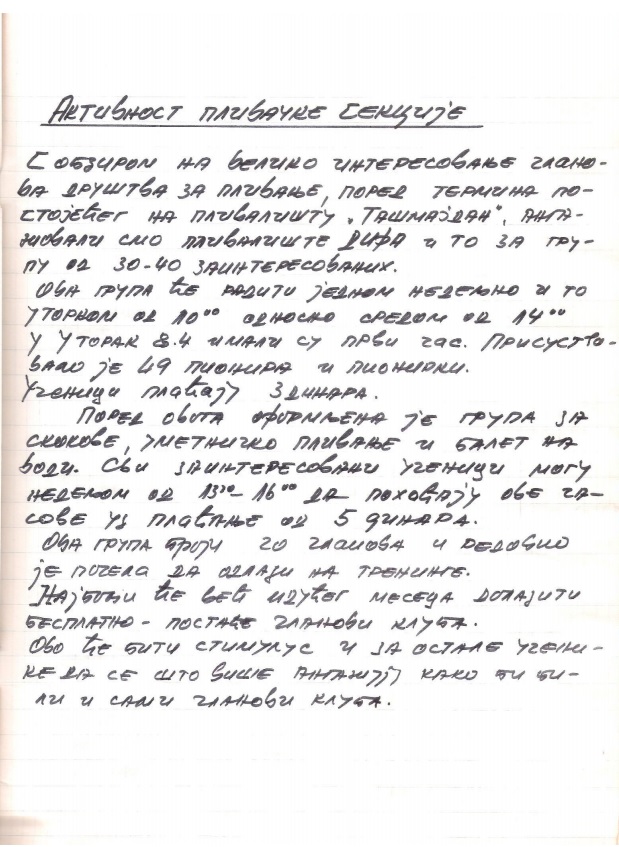 Активност пливачке секције
С обзиром на велико интересовање чланo-
ва друштва за пливање, поред термина по-
стојећег на пливалишту „Ташмајдан", анга-
жовали смо пливалиште ДИФА и то за гру-
пу од 30-40 заинтересованих.
Ова група ће радити једном недељно и то
уторком од 10⁰⁰ односно средом од 14⁰⁰
У уторак 8.4 имали су први час. Присуство-
вало је 49 пионира и пионирки.
Ученици плаћају 3 динара.
Поред овога оформљена је група за
скокове, уметничко пливање и балет на
води. Сви заинтересовани ученици могу
недељом од 13³⁰- 16⁰⁰ да похађају ове ча-
сове уз плаћање од 5 динара.
Ова група броји 20 чланова и редовно
је почела да одлази на тренинге.
Најбољи ће већ идућег месеца долазити
бесплатно - постаће чланови клуба.
Ово ће бити стимулус и за остале учени-
ке да се што више ангажују како би би-
ли и сами чланови клуба.